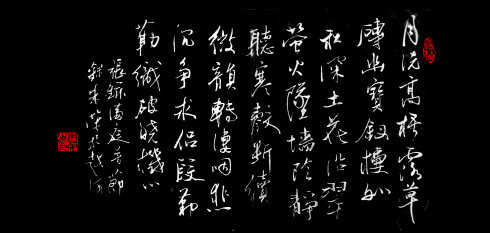 月洗高梧露草
漙幽寶釵樓外
秋深土花沿翠
螢火墜墻陰靜
聽寒聲斷續
微韻轉淒咽悲
沉爭求侶殷勤
勸織破曉機心
張鎡滿庭芳節